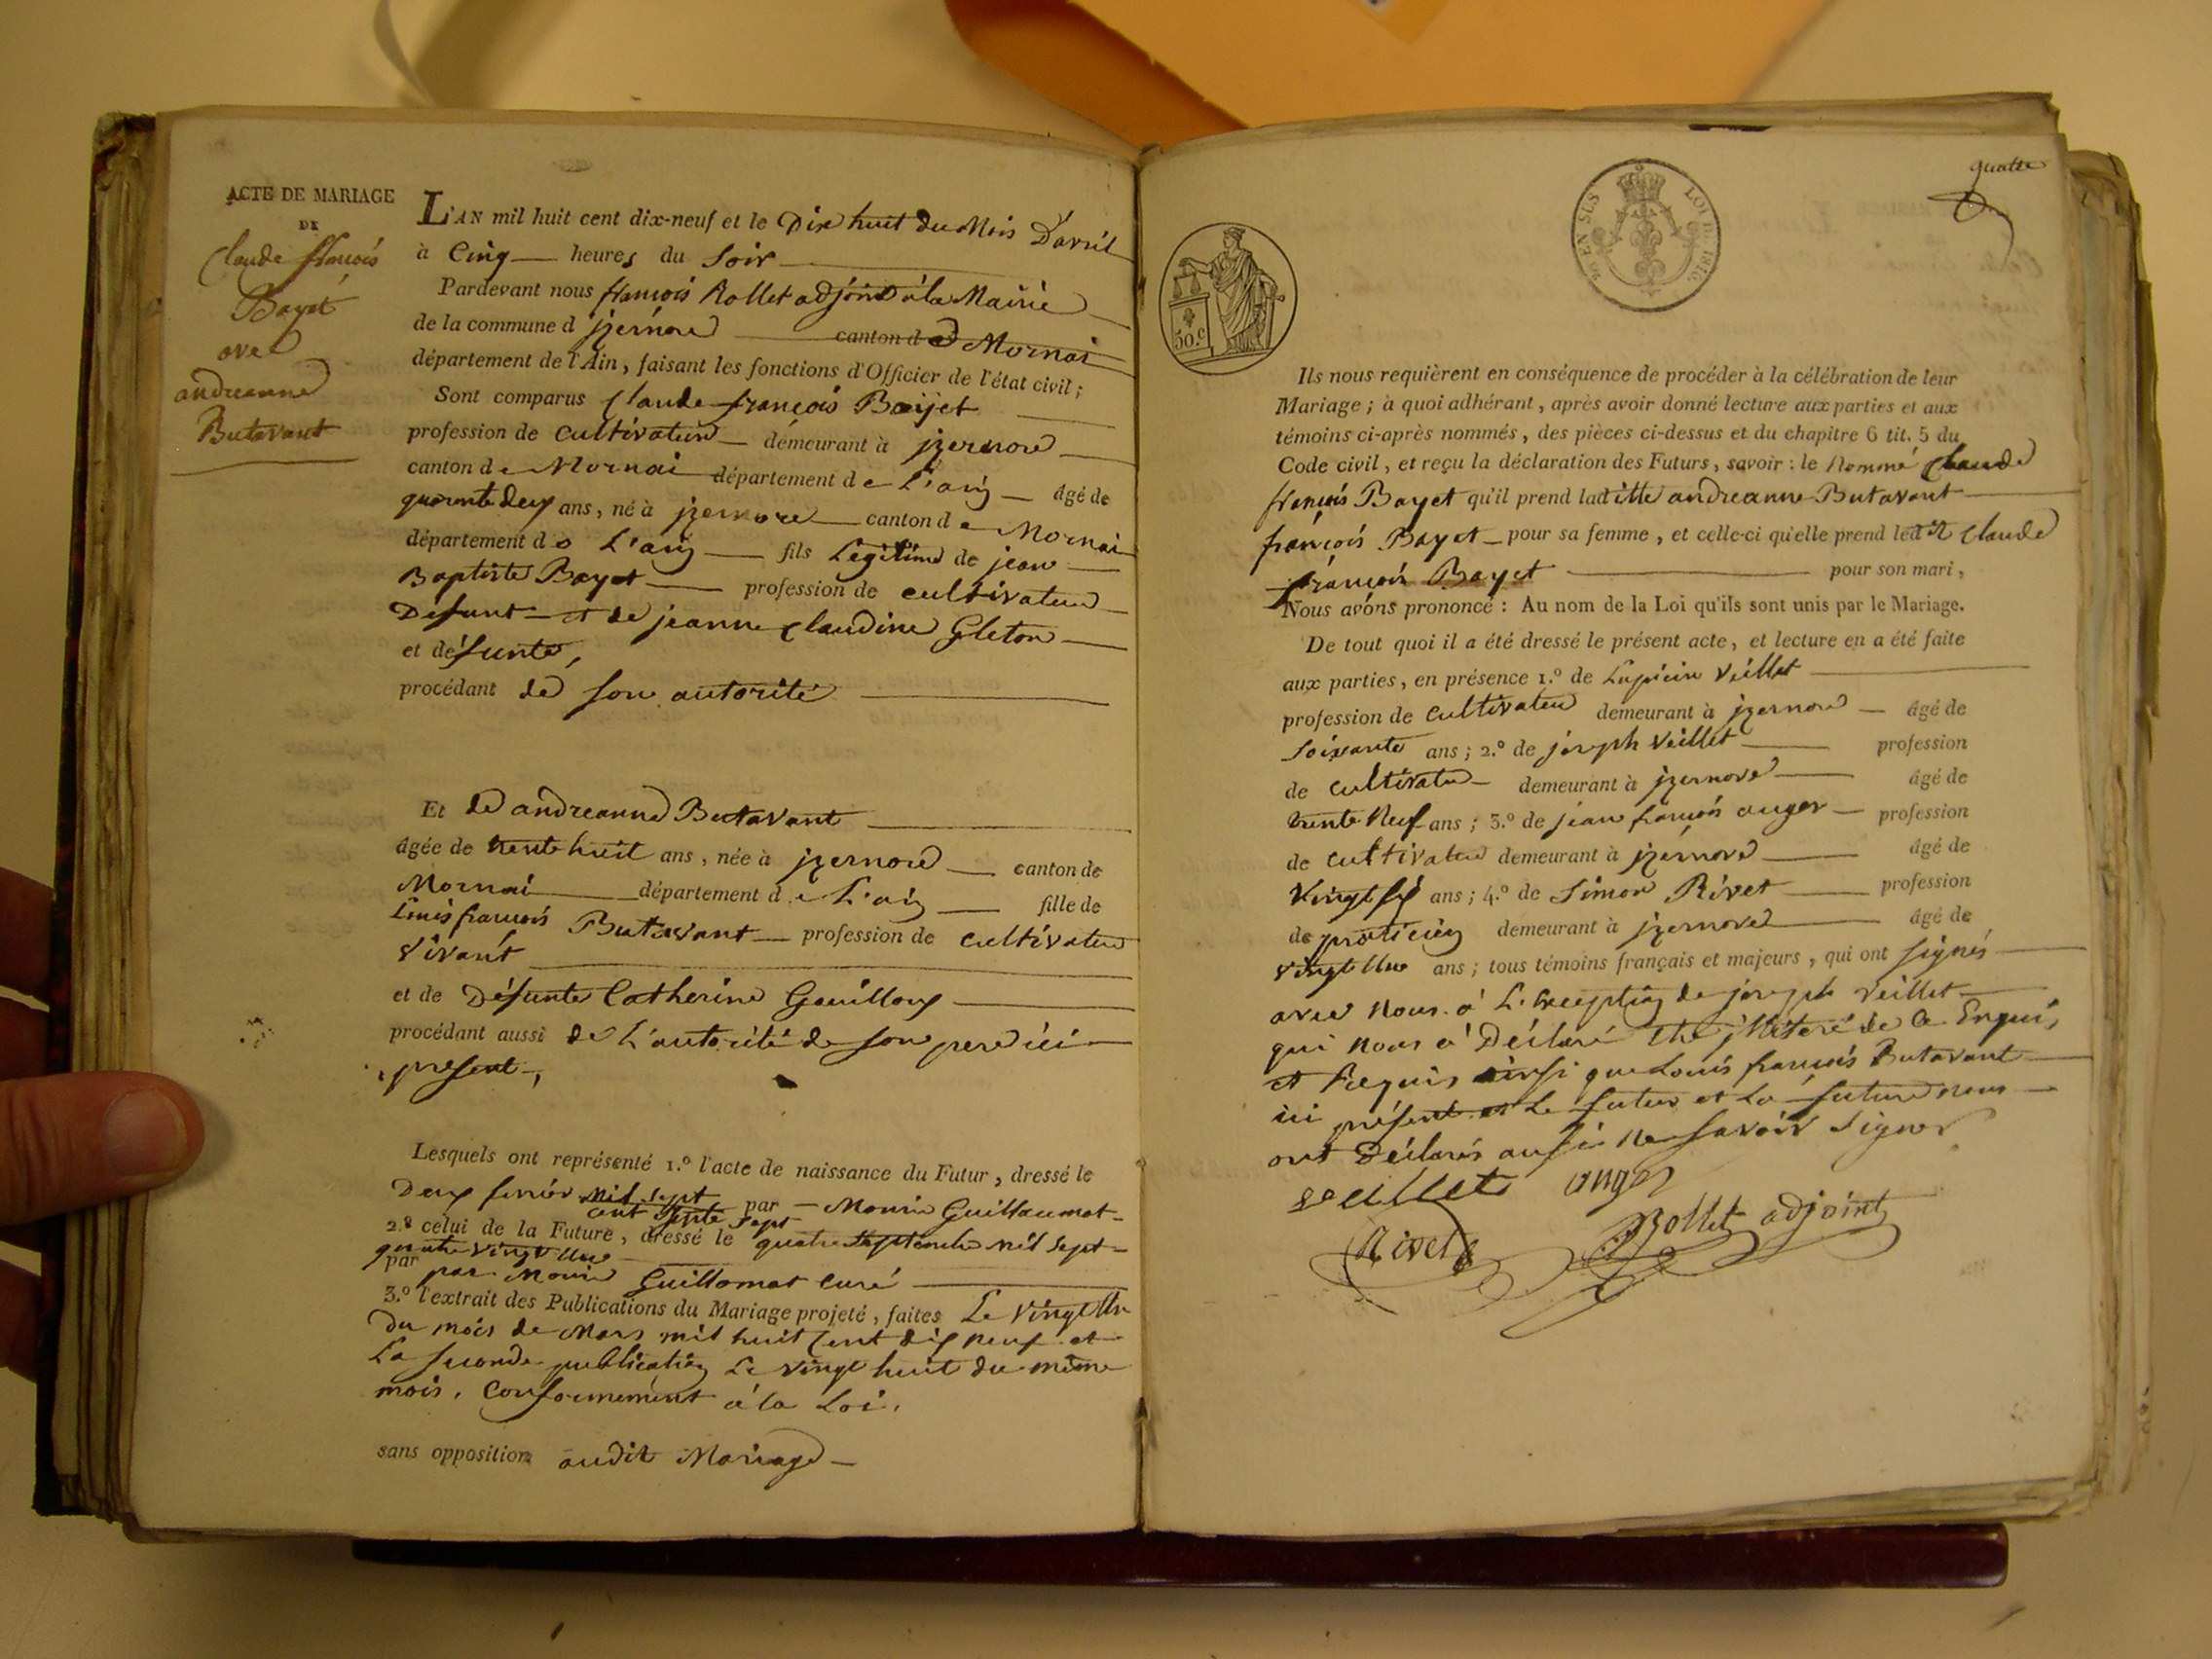 ACTE DE MARIAGE
DE
Claude françois
Bayet
avec
andreanne
Butavant
L'AN mil huit cent dix-neuf et le Dix huit du Mois D'avril
à Cinq heures du Soir
Pardevant nous françois Rollet adjoint à la Mairie
de la commune d jzernore canton d e Mornai
département de l'Ain, faisant les fonctions d'Officier de l'état civil;
Sont comparus Claude françois Baÿet
profession de Cultivateur démeurant à jzernore
canton d e Mornai département d e L'ain âgé de
quarante deux ans, né à jzernore canton d e Mornai
département d e L'ain fils Legitime de jean
Baptiste Bayet profession de cultivateur
Defunt et de jeanne Claudine Gleton
et défunte,
procédant de son autorité
Et de andreanne Butavant
âgée de trente huit ans, née à jzernore canton de
Mornai département d e L'ain fille de
Louis françois Butavant profession de cultivateur
vivant
et de Défunte Catherine Gouilloux
procédant aussi de L'autorité de son pere ici
présent,
Lesquels ont représenté 1.º l'acte de naissance du Futur, dressé le
Deux fevrier mil sept
cent septe sept par Monsir Guillaumot
2.º celui de la Future, dressé le quatre septembre mil sept
quatre vingt une
par par Monsir Guillomot curé
3.º l'extrait des Publications du Mariage projeté, faites Le vingt Un
Du mois de Mars mil huit Cent dix neuf et
La seconde publication Le vingt huit du même
mois, Conformement à la Loi,
sans opposition audit Mariage
quatre
50 EN SUS LOI DE 1816.
50.c
Ils nous requièrent en conséquence de procéder à la célébration de leur
Mariage; à quoi adhérant, après avoir donné lecture aux parties et aux
témoins ci-après nommés, des pièces ci-dessus et du chapitre 6 tit. 5 du
Code civil, et reçu la déclaration des Futurs, savoir: le Nommé Claude
françois Bayet qu'il prend laditte andreanne Butavant
françois Bayet pour sa femme, et celle-ci qu'elle prend ledit Claude
françois Bayet pour son mari,
Nous avons prononcé: Au nom de la Loi qu'ils sont unis par le Mariage.
De tout quoi il a été dressé le présent acte, et lecture en a été faite
aux parties, en présence 1.º de Lupicin Veillet
profession de Cultivateur demeurant à jzernore âgé de
Soixante ans; 2.º de joseph Veillet profession
de cultivateur demeurant à jzernore âgé de
trente Neuf ans; 3.º de jean françois auger profession
de cultivateur demeurant à jzernore âgé de
Vingt six ans; 4.º de Simon Rivet profession
de praticien demeurant à jzernore âgé de
vingt Une ans; tous témoins français et majeurs, qui ont signés
avec Nous à L'exception de joseph Veillet
qui nous a Déclaré Une jlliteré de Ce Enquis
et Requis ainsi que Louis françois Butavant
ici présent et Le futur et La future nous
ont Déclarés aussi Ne savoir Signer
veillet auger
Rivet Rollet adjoint